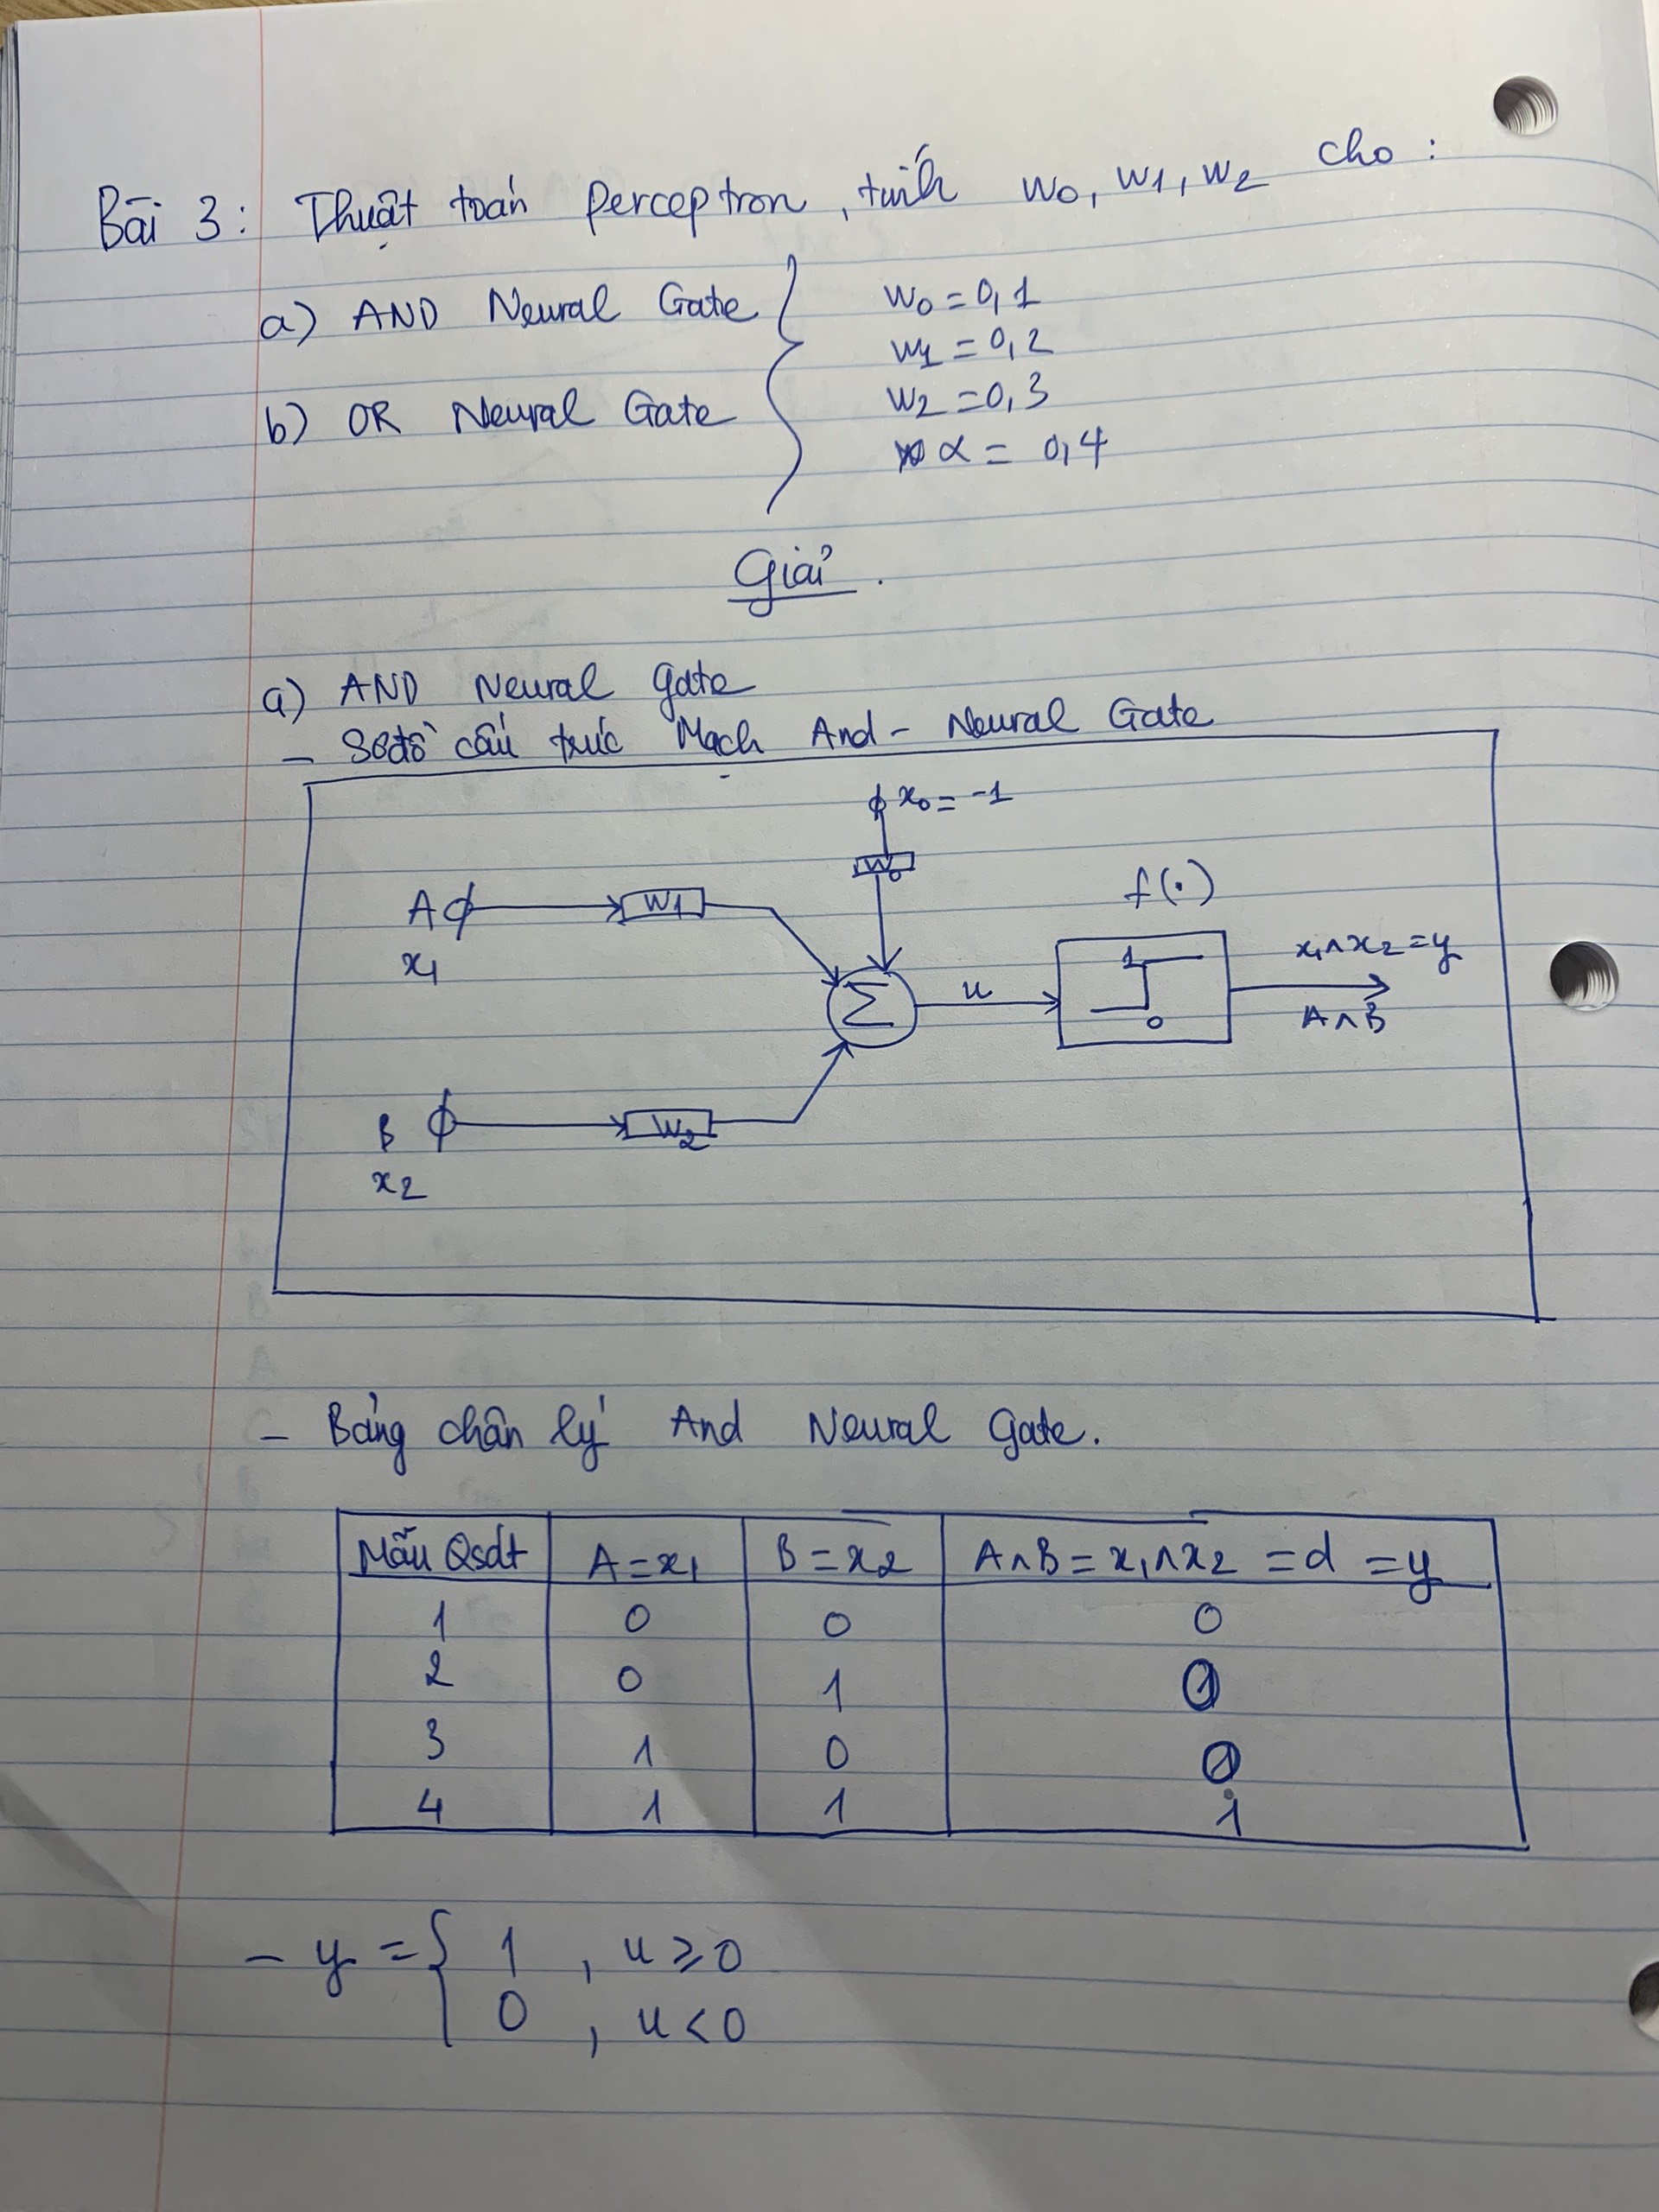 Bài 3: Thuật toán perceptron, tính w0, w1, w2 cho :
a) AND Neural Gate
b) OR Neural Gate
w0 = 0,1
w1 = 0,2
w2 = 0,3
α = 0,4
Giải.
a) AND Neural gate
- Sơ đồ cấu trúc Mạch And - Neural Gate
x0 = -1
w0
A
x1
w1
f(.)
Σ
u
1
0
x1∧x2 = y
A∧B
B
x2
w2
- Bảng chân lý And Neural Gate.
Mẫu Qsdt A = x1 B = x2 A∧B = x1∧x2 = d = y
1 0 0 0
2 0 1 0
3 1 0 0
4 1 1 1
- y = { 1 , u ≥ 0
0 , u < 0